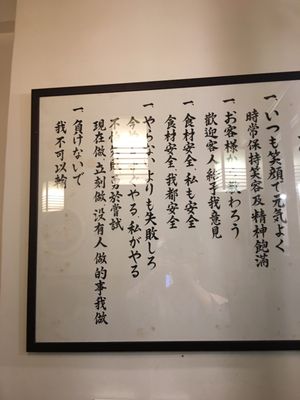 一 いつも笑顔で元気よく
時常保持笑容及精神飽滿
一 お客様か 教わろう
歡迎客人給予我意見
一 食材安全 私も安全
食材安全、我都安全
一 やら よりも失敗しろ
今 やる 私がやる
不 於嘗試
現在做 立刻做 沒有人做的事我做
一 負けないで
我不可以輸